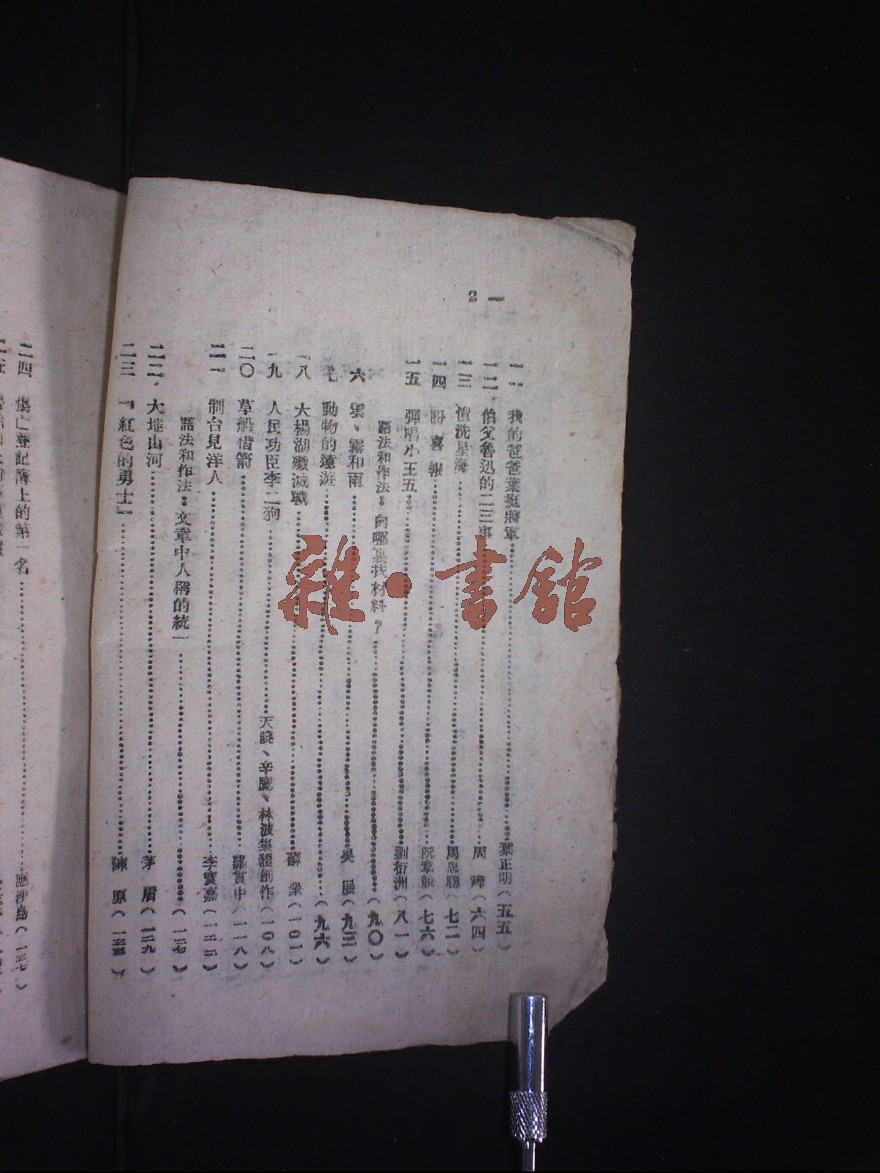 2 一
一一 我的爸爸葉挺將軍 葉正明(五五)
一二、伯父魯迅的二三事 周曄(六四)
一三 憶冼星海 馬思聰(七二)
一四 盼喜報 阮章競(七六)
一五 彈唱小王五 劉衍洲(八一)
語法和作法:向哪裏找材料? (九〇)
六 雲、霧和雨 吳展(九三)
動物的遠遊 (九六)
一八 大楊湖殲滅戰 (一〇一)
一九 人民功臣李二狗 天曉、辛鷹、林波集體創作(一〇八)
二〇 草船借箭 羅貫中(一一八)
二一 制台見洋人 李寶嘉(一二二)
語法和作法:文章中人稱的統一 (一二七)
二二、大地山河 茅盾(一二九)
二三 『紅色的勇士』 陳原
二四 傷亡登記簿上的第一名 應沙島(一三七)
雜·書館